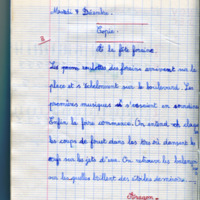 Mardi 9 Décembre.
Copie
A la fête foraine.
Les roulottes des forains arrivent sur la
place et s'échelonnent sur le boulevard. Les
premières musiques s'essaient en sourdine
Enfin la foire commence. On entend
les coups de fusil dans les tirs
œufs sur les jets d'eau. On retrouve les
sur lesquelles brillent des étoiles de
Aragon.